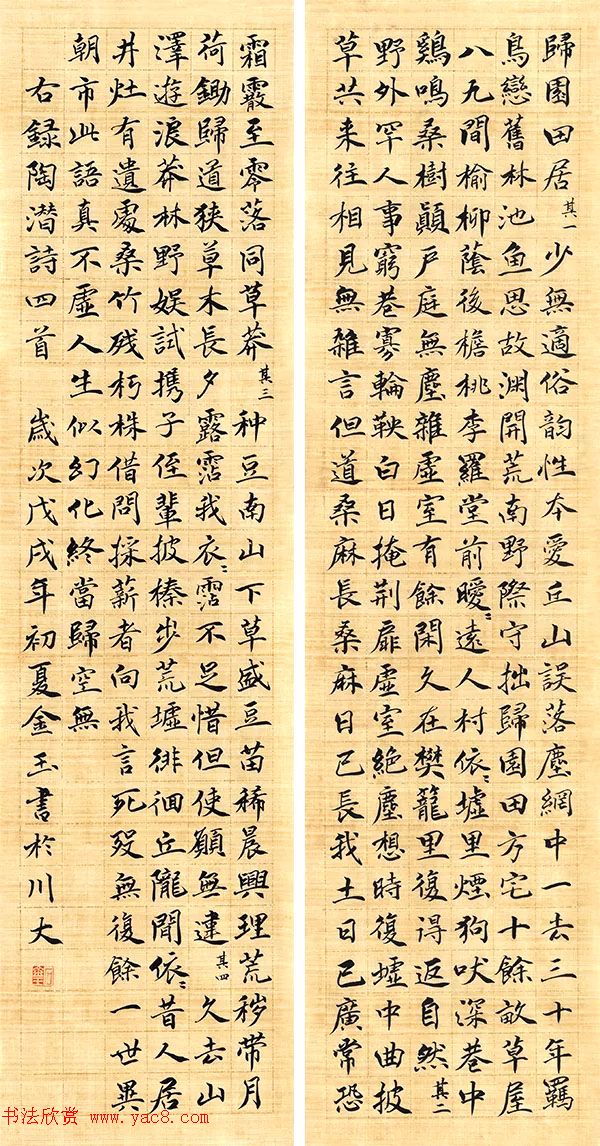 歸園田居 其一 少無適俗韵性本愛丘山誤落塵網中一去三十年羈
鳥戀舊林池魚思故渊開荒南野際守拙歸園田方宅十餘畝草屋
八九間榆柳蔭後檐桃李羅堂前曖〻遠人村依〻墟里煙狗吠深巷中
鷄鳴桑樹顛戶庭無塵雜虛室有餘閑久在樊籠里復得返自然 其二
野外罕人事窮巷寡輪鞅白日掩荆扉虛室絕塵想時復墟中曲披
草共来往相見無雜言但道桑麻長桑麻日已長我土日已廣常恐
霜霰至零落同草莽 其三 种豆南山下草盛豆苗稀晨興理荒秽带月
荷鋤歸道狹草木長夕露霑我衣〻霑不足惜但使願無違 其四 久去山
澤遊浪莽林野娱試携子侄輩披榛步荒墟徘徊丘隴間依〻昔人居
井灶有遺處桑竹残朽株借問採薪者向我言死殁無復餘一世異
朝市此語真不虛人生似幻化終當歸空無
右録陶潜詩四首 歲次戊戌年初夏金玉書於川大
书法欣赏 www.yac8.com